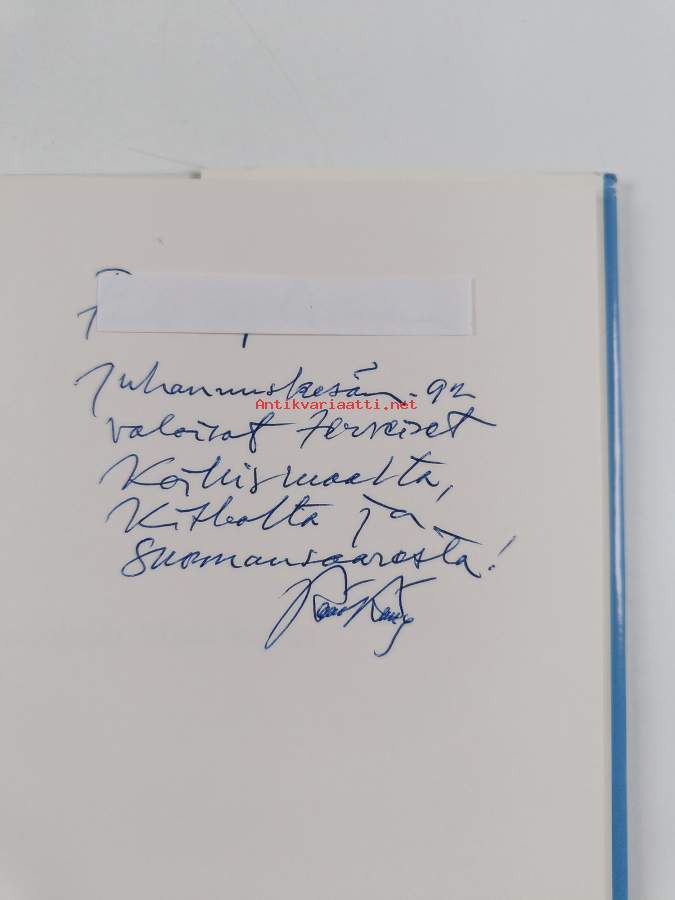 Juhannuskesän -92
Antikvariaatti.net
valoisat terveiset
Kitkalta ja
Suomansaaresta!